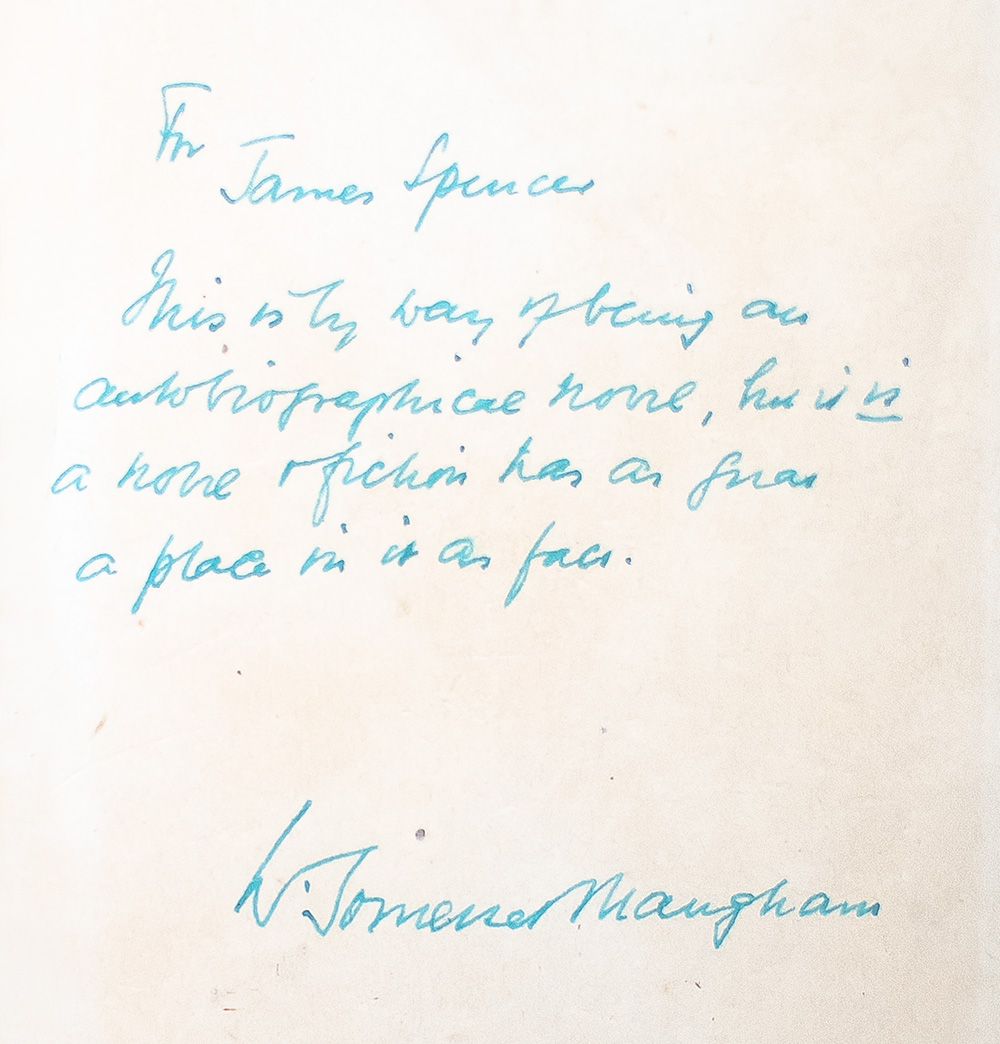 For
James Spencer
This is by way of being an
autobiographical novel, but it is
a novel & fiction has as great
a place in it as fact.
W. Somerset Maugham